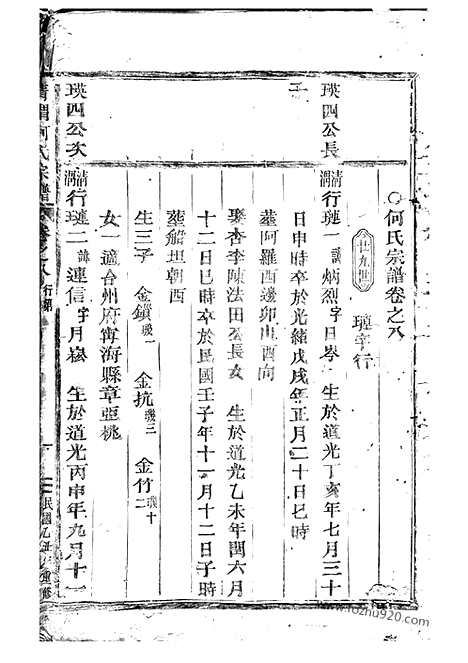 ○何氏宗譜卷之八
廿九世
璉字行
瑛四公長子
清渭行璉一 諱炳烈字日 生於道光丁亥年七月三十
日申時卒於光緒戊戌年正月二十日巳時
葬阿羅西邊卯山酉向
娶杏李陳法田公長女 生於道光乙未年閏六月
十二日巳時卒於民國壬子年十一月十二日子時
葬船坦朝西
生三子 金鎖璣一 金抗璣三 金竹璣十二
女一適台州府寧海縣章亞桃
瑛四公次
清渭行璉二 諱連信字月 生於道光丙申年九月十一
清渭何氏宗譜
卷之八 行第
一
民國乙丑年重修
www.fozhu920.com